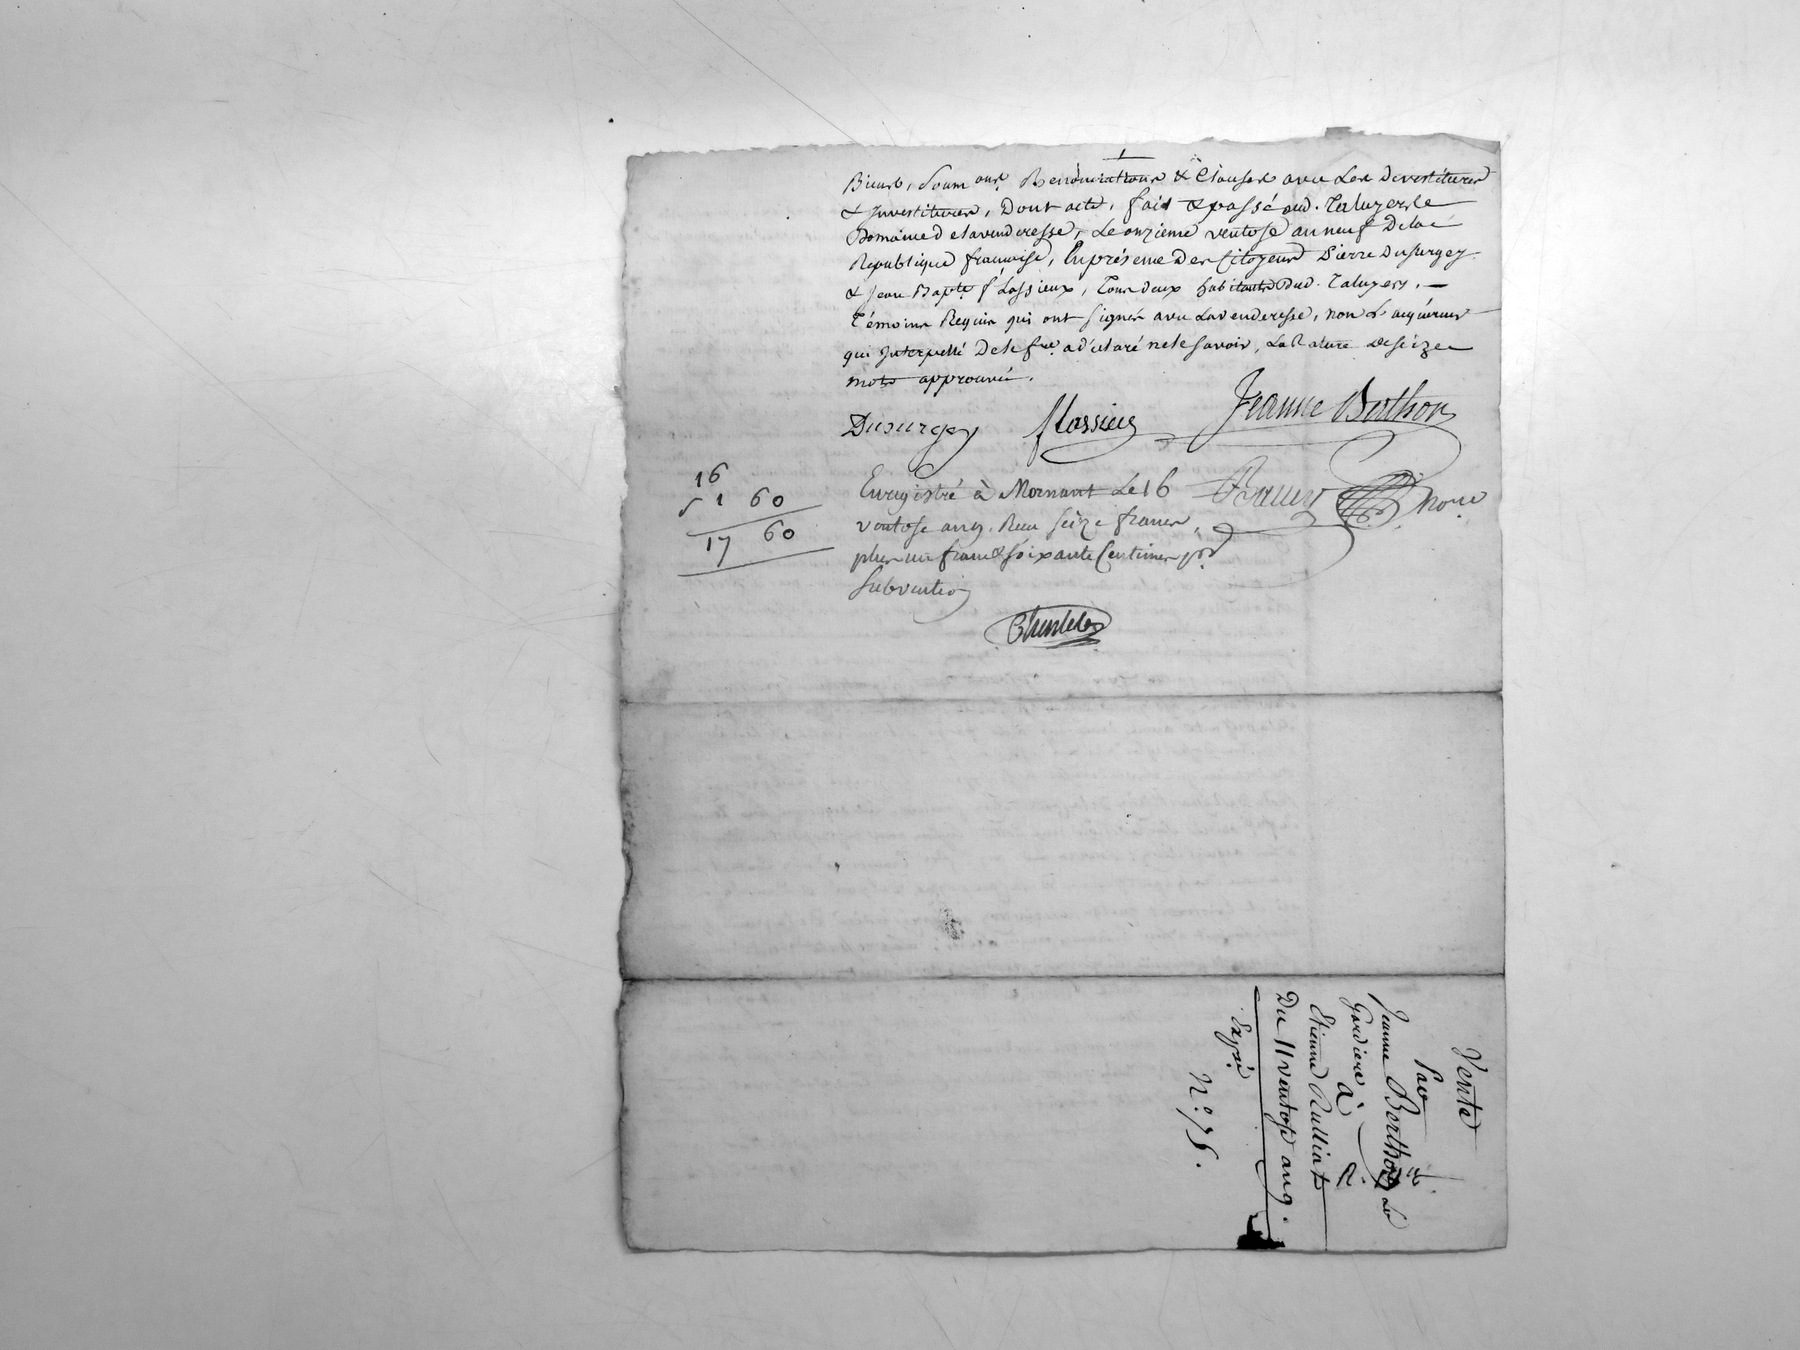 Biens, Soum ons Renonciations & Clauses avec les devestitures
& Investitures, Dont acte, fait & passé aud. Taluyers le
Domaine de la venderesse, Le onzieme ventose an neuf De la
Republique francaise, En présence Des Citoyens Pierre Dusurgey
& Jean Bapte flassieux, Tous deux habitants Dud. Taluyers. —
Témoins Requis qui ont signés avec la venderesse, non L'acquéreur
qui Interpellé De le fre a déclaré ne le savoir, La Rature de seize
mots approuvée.
Dusurgey flassieux Jeanne Berthon
16
1 60
17 60
Enregistré à Mornant Le 16
ventose an 9. Reçu seize francs,
plus un franc & soixante Centimes pr
Subvention
Nore
Vente
Par
Jeanne Berthon
à
Etienne Rulliat
Du 11 ventose an 9.
Expé
N.° 75.